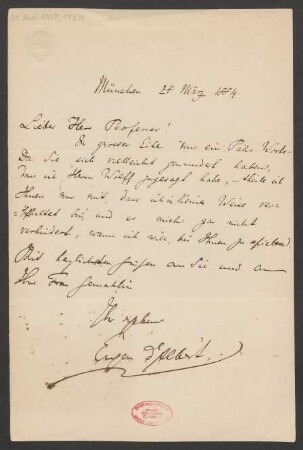 München 28 März 1884.
Lieber Herr Professor!
In grosser Eile nur ein Paar Worte.
Da Sie sich vielleicht gewundert haben,
dass ich Herrn Wolff zugesagt habe, – theile ich
Ihnen nur mit, dass ich in keine Weise ver-
pflichtet bin und es mich gar nicht
verhindert, wenn ich will, bei Ihnen zu spielen.
Mit herzlichsten Grüßen an Sie und an
Ihre Frau Gemahlin
Ihr
Eugen d'Albert.